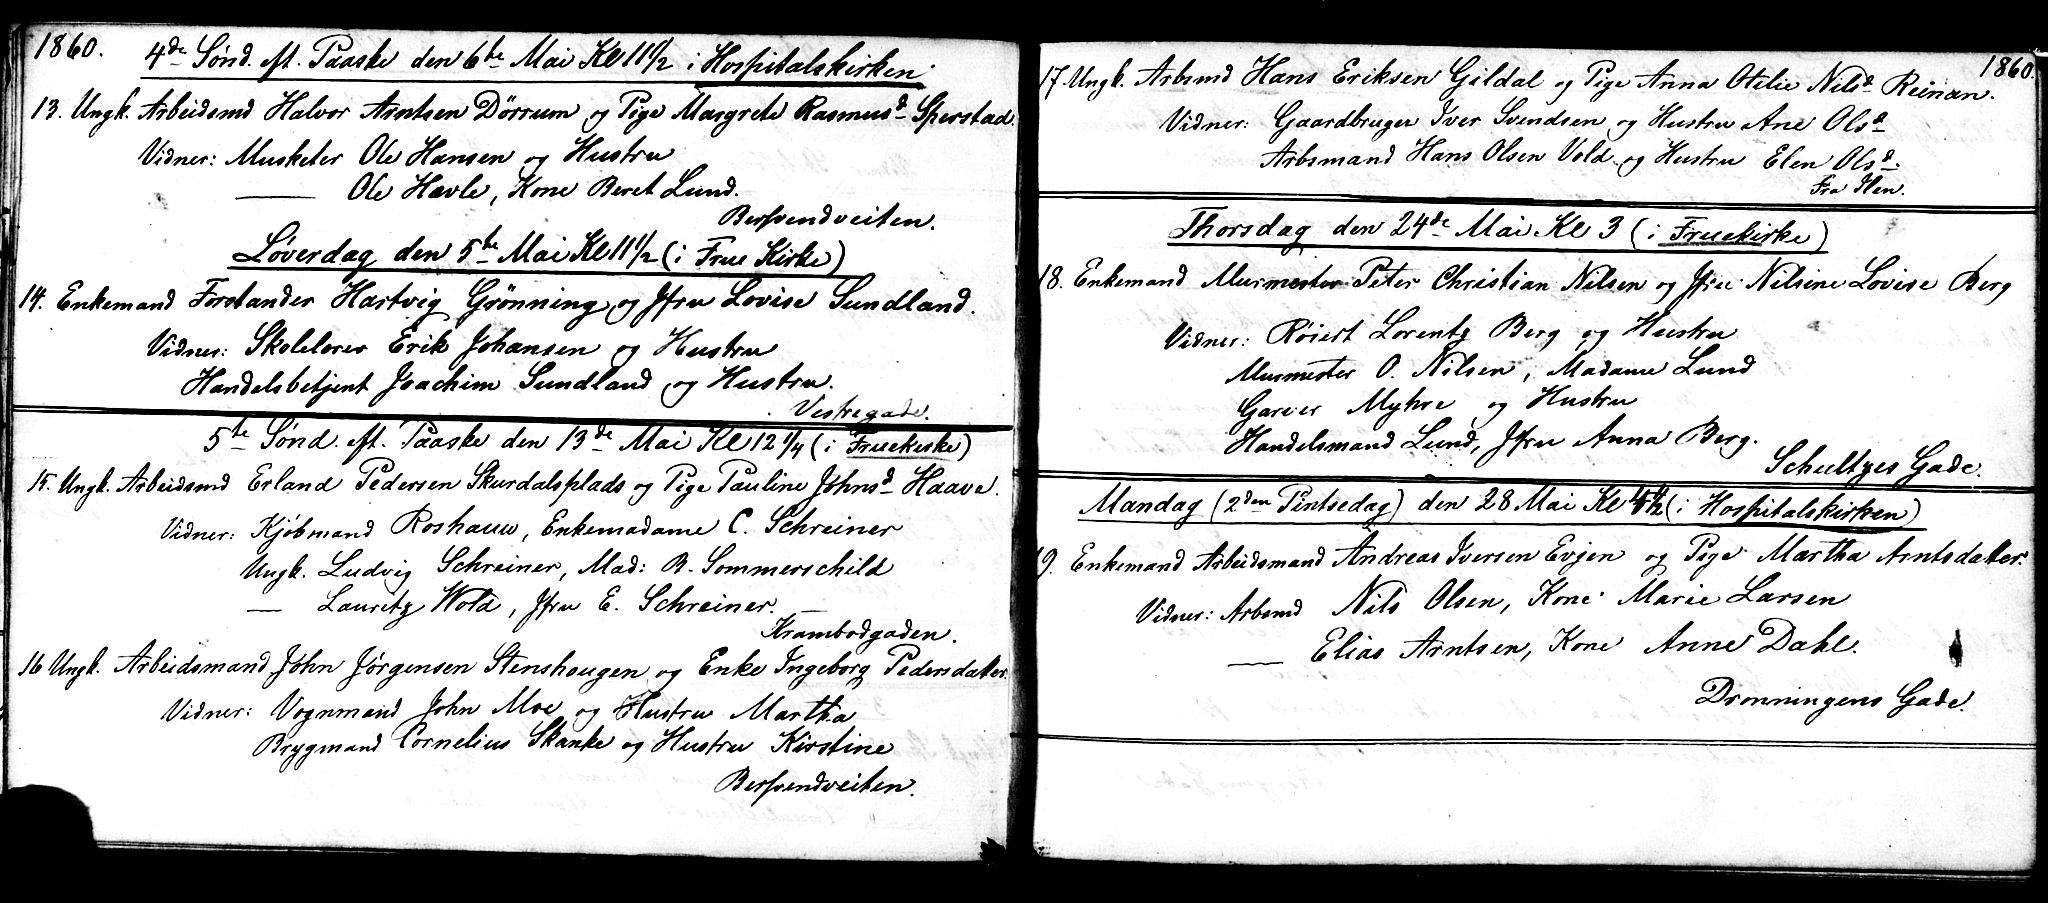 1860.
4de Sønd. eft. Paaske den 6te Mai Kl 11 1/2 i Hospitalskirken
13. Ungk. Arbeidsmd Halvor Arntsen Dörrum og Pige Margrete Rasmusd Sperstad.
Vidner: Musketer Ole Hansen og Hustru
—— Ole Havle, Kone Beret Lund.
Bersvendveiten.
Løverdag den 5te Mai Kl 11 1/2 (i Frue Kirke)
14. Enkemand Forstander Hartvig Grønning og Jfru Lovise Sundland.
Vidner: Skolelærer Erik Johansen og Hustru
Handelsbetjent Joachim Sundland og Hustru.
Vestregade.
5te Sønd. eft. Paaske den 13de Mai Kl 12 1/4 (i Fruekirke)
15. Ungk. Arbeidsmd Erland Pedersen Skurdalsplads og Pige Pauline Johnsd Haave.
Vidner: Kjöbmand Roshauw, Enkemadame C. Schreiner
Ungk. Ludvig Schreiner, Mad: B. Sommerschild
— Lauretz Wold, Jfru E. Schreiner. —
Krambodgaden.
16 Ungk. Arbeidsmand John Jörgensen Stenshougen og Enke Ingeborg Pedersdatter.
Vidner: Vognmand John Moe og Hustru Martha
Brygmand Cornelius Skanke og Hustru Kirstine
Bersvendveiten.
1860.
17. Ungk. Arbsmd Hans Eriksen Gildal og Pige Anna Otilie Nilsd Reinan.
Vidner: Gaardbruger Iver Svendsen og Hustru Ane Olsd
Arbsmand Hans Olsen Vold og Hustru Elen Olsd.
Fra Ilen.
Thorsdag den 24de Mai Kl 3 (i Fruekirke)
18. Enkemand Murmester Peter Christian Nilsen og Jfru Nilsine Lovise Berg
Vidner: Røiert Lorentz Berg og Hustru
Murmester O. Nilsen, Madame Lund
Garver Myhre og Hustru
Handelsmand Lund, Jfru Anna Berg.
Schultzes Gade.
Mandag (2den Pintsedag) den 28 Mai Kl (i Hospitalskirken)
19. Enkemand Arbeidsmand Andreas Iversen Evjen og Pige Martha Arntsdatter.
Vidner: Arbsmd Nils Olsen, Kone Marie Larsen
—— Elias Arntsen, Kone Anne Dahl.
Dronningens Gade.